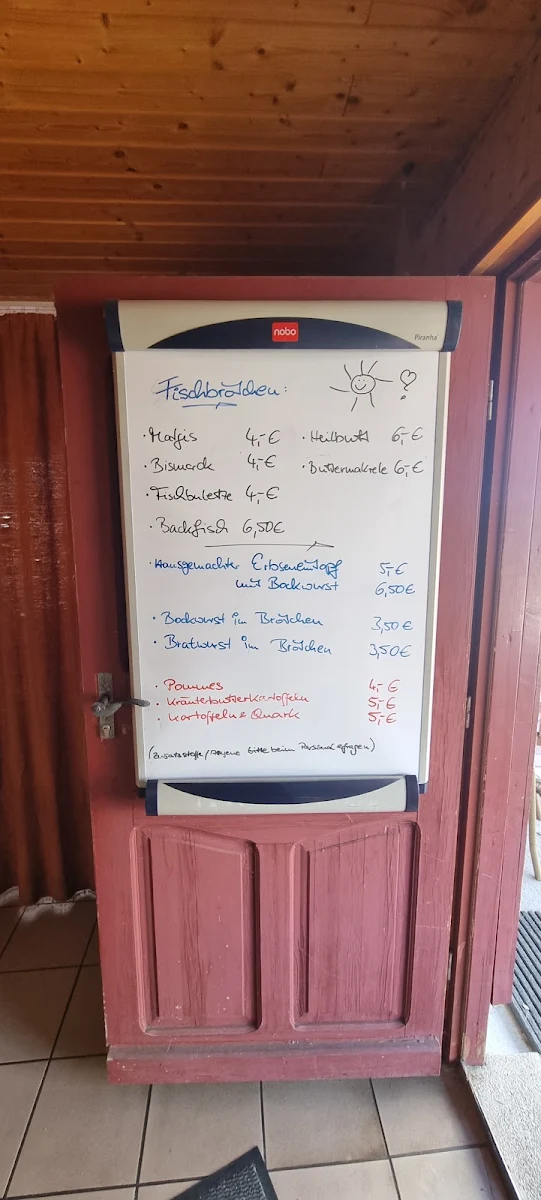 nobo
Piranha
Fischbrötchen:
· Matjis 4,-€ · Heilbutt 6,-€
· Bismarck 4,-€ · Buttermakrele 6,-€
· Fischbulette 4,-€
· Backfisch 6,50€
· Hausgemachter Erbseneintopf 5,-€
mit Bockwurst 6,50€
· Bockwurst im Brötchen 3,50€
· Bratwurst im Brötchen 3,50€
· Pommes 4,-€
· Kräuterbutterkartoffeln 5,-€
· Kartoffeln & Quark 5,-€
(Zusatzstoffe/ bitte beim Personal erfragen)